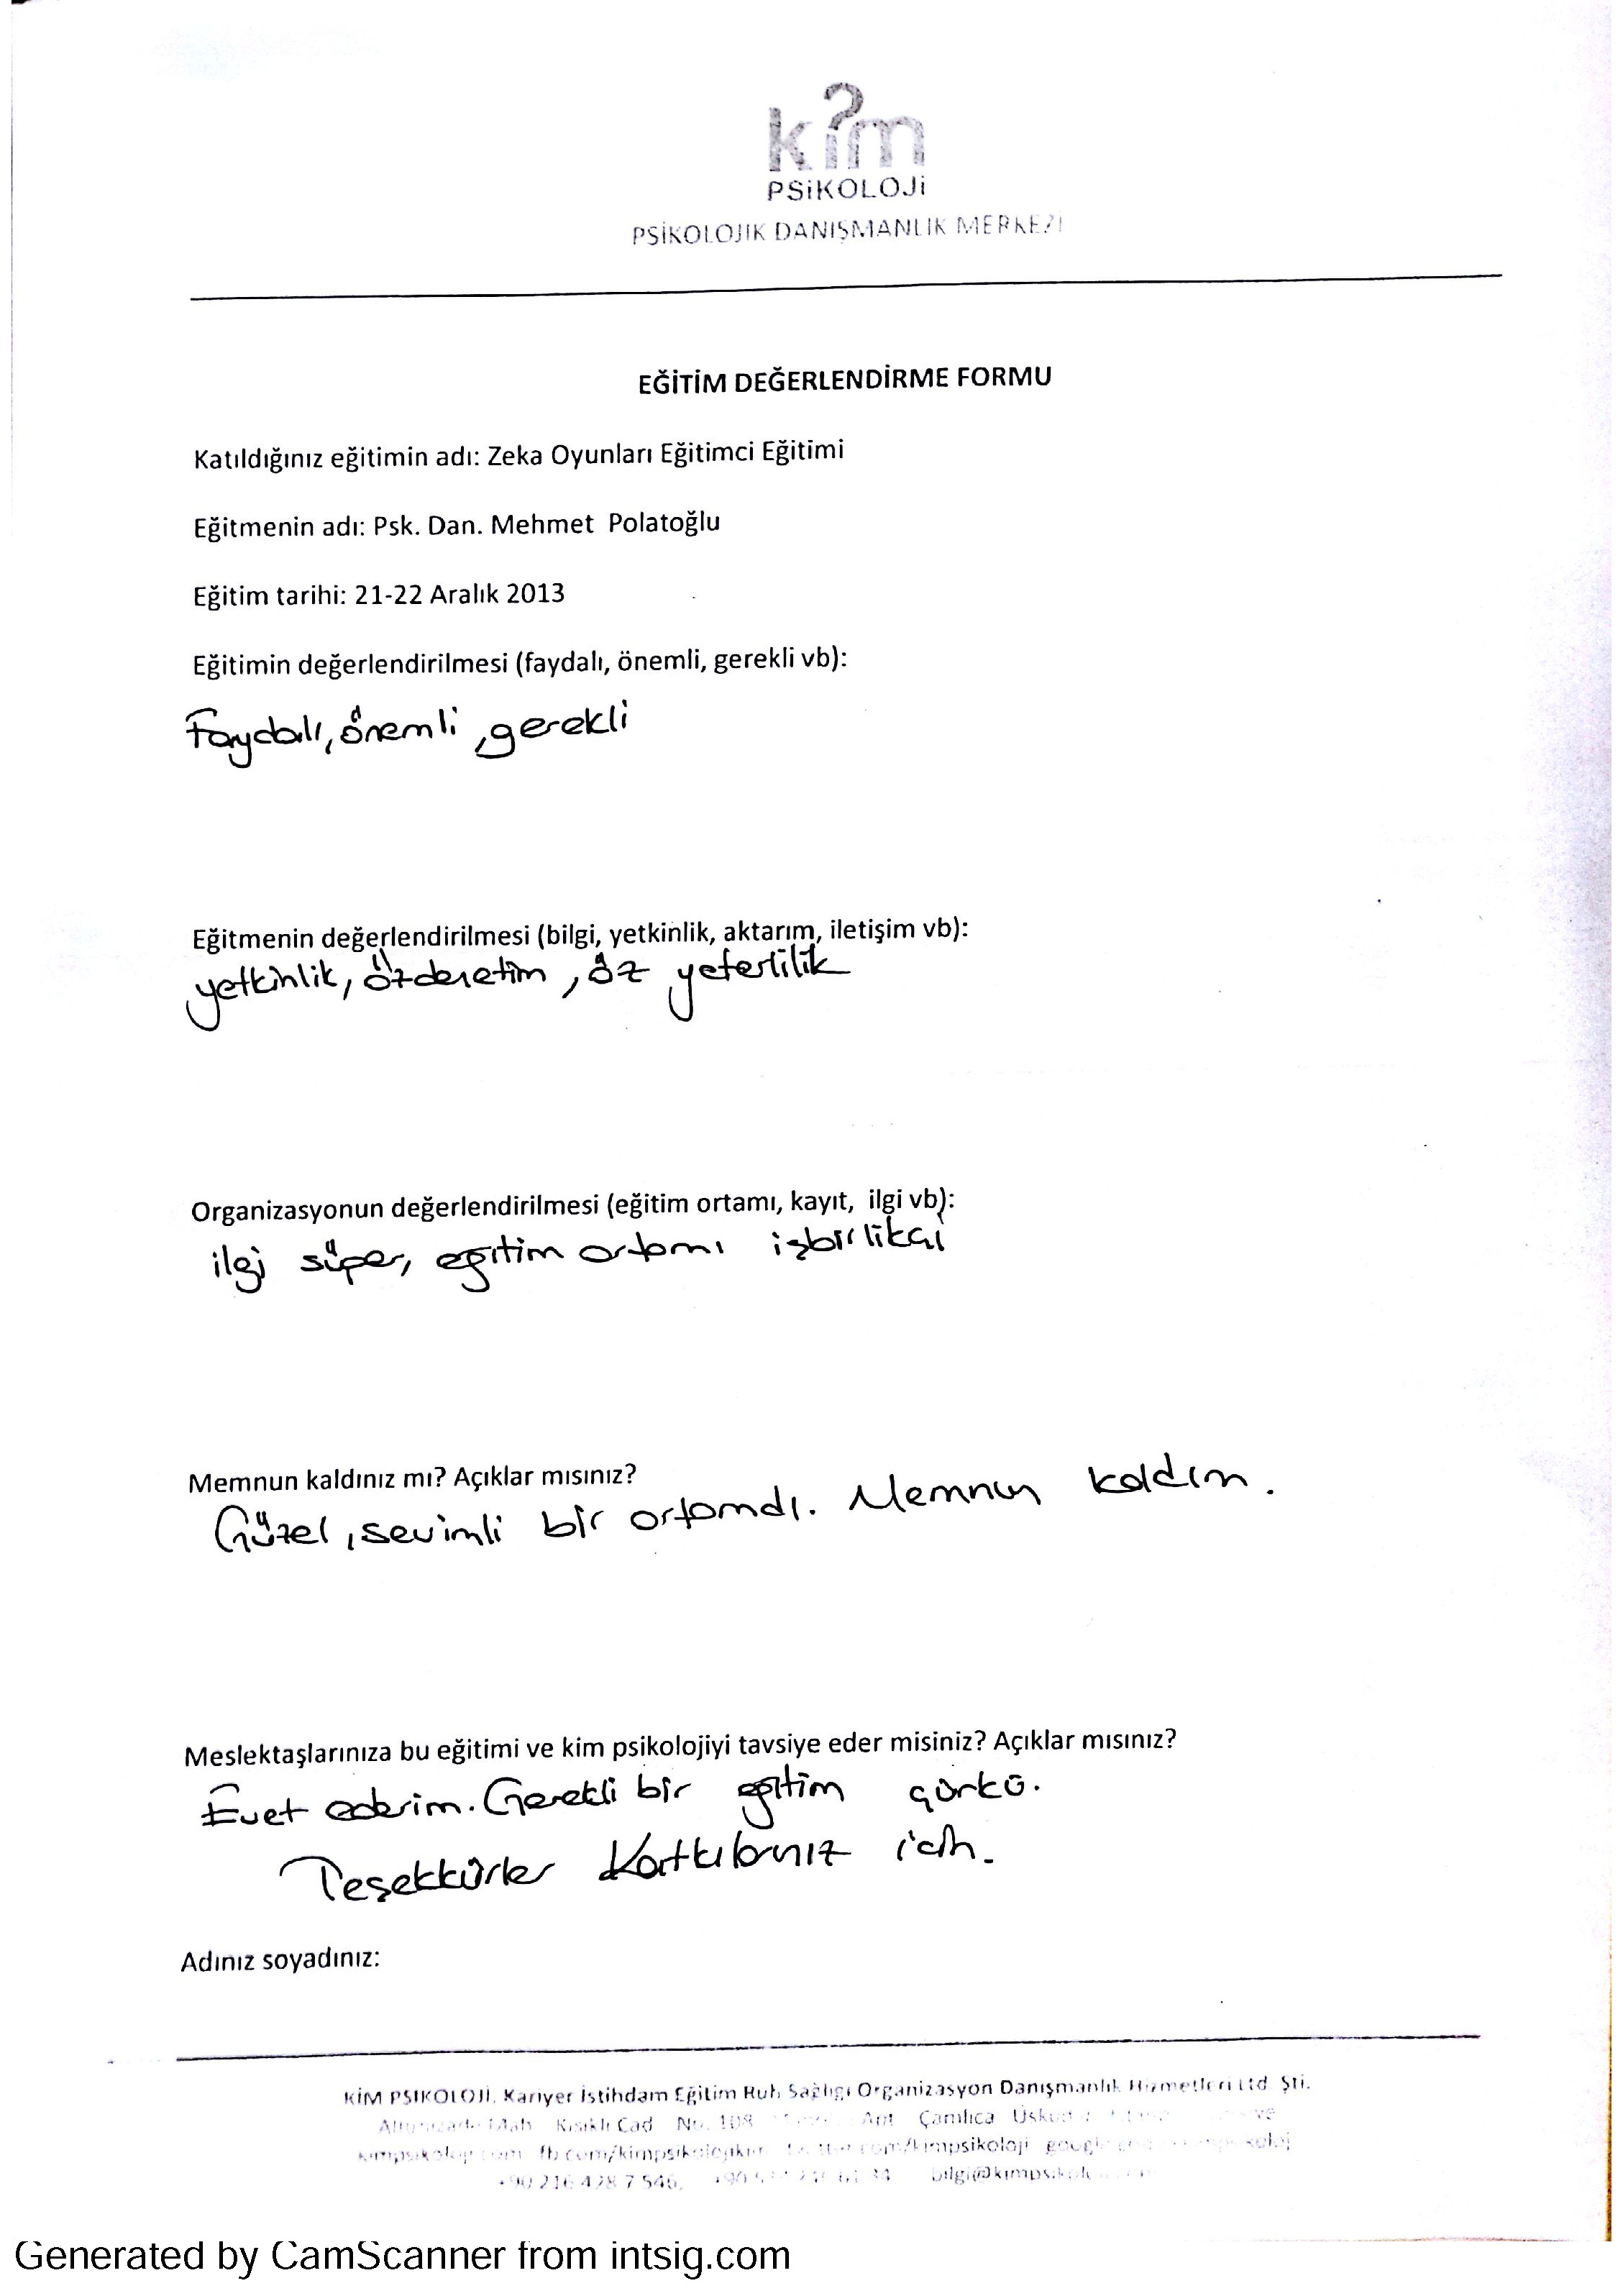 kim
PSiKOLOJi
PSİKOLOJİK DANIŞMANLIK MERKEZİ
EĞİTİM DEĞERLENDİRME FORMU
Katıldığınız eğitimin adı: Zeka Oyunları Eğitimci Eğitimi
Eğitmenin adı: Psk. Dan. Mehmet Polatoğlu
Eğitim tarihi: 21-22 Aralık 2013
Eğitimin değerlendirilmesi (faydalı, önemli, gerekli vb):
Faydalı, önemli, gerekli
Eğitmenin değerlendirilmesi (bilgi, yetkinlik, aktarım, iletişim vb):
yetkinlik, özdenetim, öz yeterlilik
Organizasyonun değerlendirilmesi (eğitim ortamı, kayıt, ilgi vb):
ilgi süper, egitim ortamı işbirlikçi
Memnun kaldınız mı? Açıklar mısınız?
Güzel, sevimli bir ortamdı. Memnun kaldım.
Meslektaşlarınıza bu eğitimi ve kim psikolojiyi tavsiye eder misiniz? Açıklar mısınız?
Evet ederim. Gerekli bir egitim çünkü.
Teşekkürler Katkılarınız için.
Adınız soyadınız:
KİM PSİKOLOJİ, Kariyer İstihdam Eğitim Ruh Sağlığı Organizasyon Danışmanlık Hizmetleri Ltd. Şti.
Altunizade Mah Kısıklı Cad No. 108 Apt Çamlıca
fb.com/kimpsikolojikur
+90 216 428 7 546,
Generated by CamScanner from intsig.com